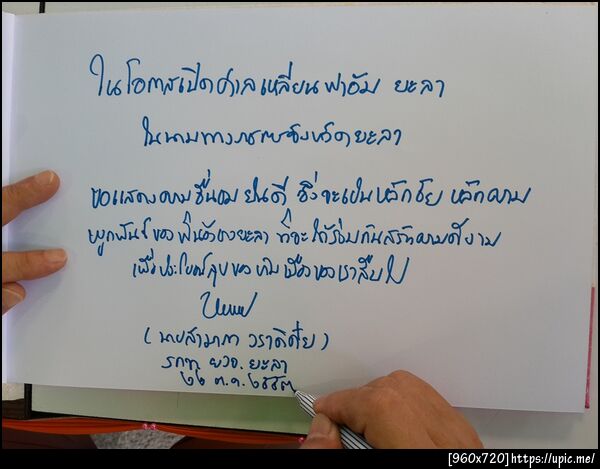 ในโอกาสเปิดศาลเหลี่ยนฟาอัม ยะลา
ในนามทางราชจังหวัดยะลา
ขอแสดงความชื่นชม ยินดี ซึ่งจะเป็นหลักชัย หลักความ
ผูกพันธ์ของพี่น้องชาวยะลา ที่จะได้ร่วมกันสร้างความดีงาม
เพื่อประโยชน์สุขของบ้านเมืองของเราสืบไป
(นายสามารถ วราดิศัย)
รกท ผวจ. ยะลา
๒๒ ต.ค. ๒๕๕๓
[960x720]https://upic.me/